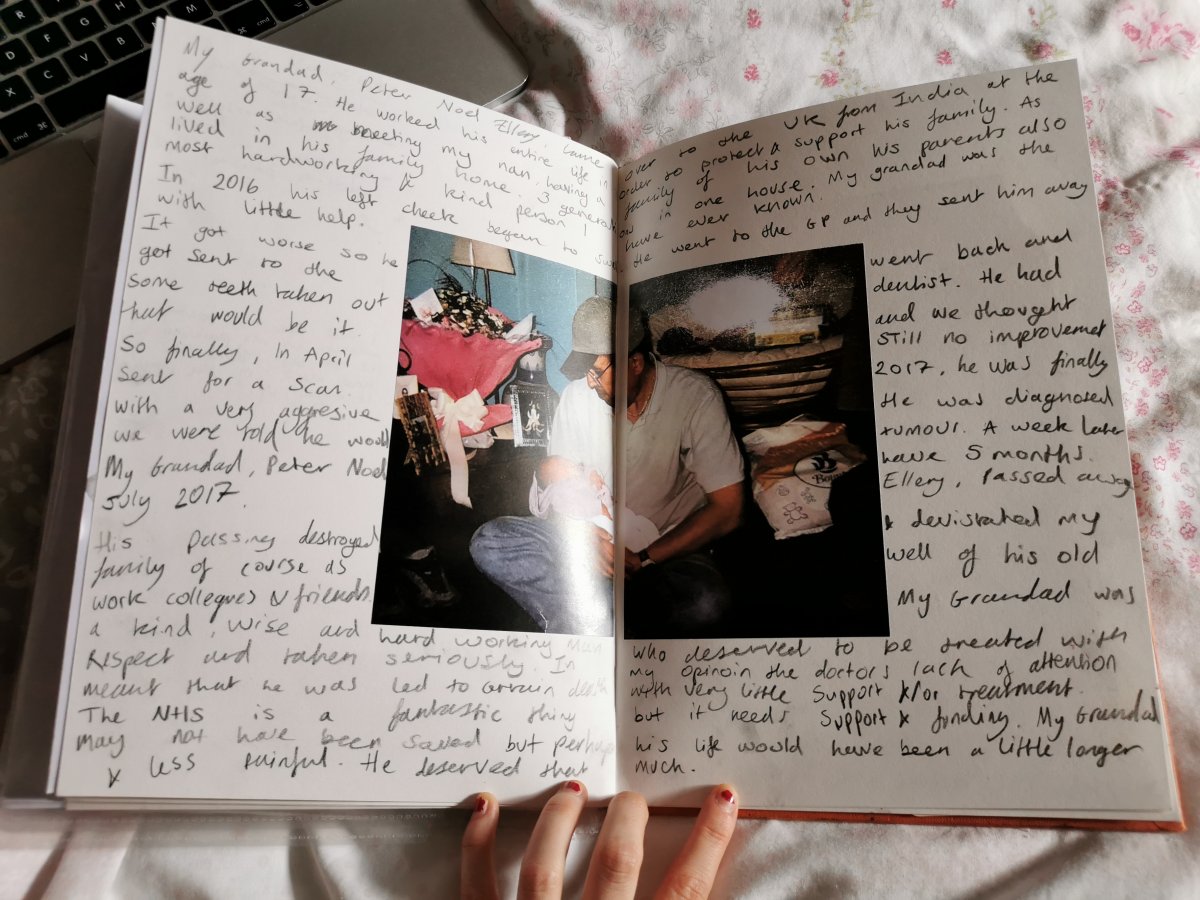 My Grandad, Peter Noel Ellery, came over to the UK from India at the
age of 17. He worked his entire life in order to protect & support his family. As
well as meeting my nan, having a family of his own his parents also
lived in his family home. 3 generation in one house. My grandad was the
most hardworking & kind person I have ever known.
In 2016 his left cheek began to swell. He went to the GP and they sent him away
with little help.
It got worse so he went back and
got sent to the dentist. He had
some teeth taken out and we thought
that would be it. Still no improvemet
So finally, In April 2017, he was finally
sent for a scan. He was diagnosed
with a very aggresive tumour. A week later
we were told he would have 5 months.
My Grandad, Peter Noel Ellery, Passed away
July 2017.
His passing destroyed & devistated my
family of course as well of his old
work collegues & friends My Grandad was
a kind, wise and hard working man who deserved to be treated with
Respect and taken seriously. In my opinoin the doctors lack of attention
meant that he was led to certain death with very little support &/or treatment.
The NHS is a fantastic thing but it needs support & funding. My Grandad
may not have been saved but perhaps his life would have been a little longer
& less painful. He deserved that much.